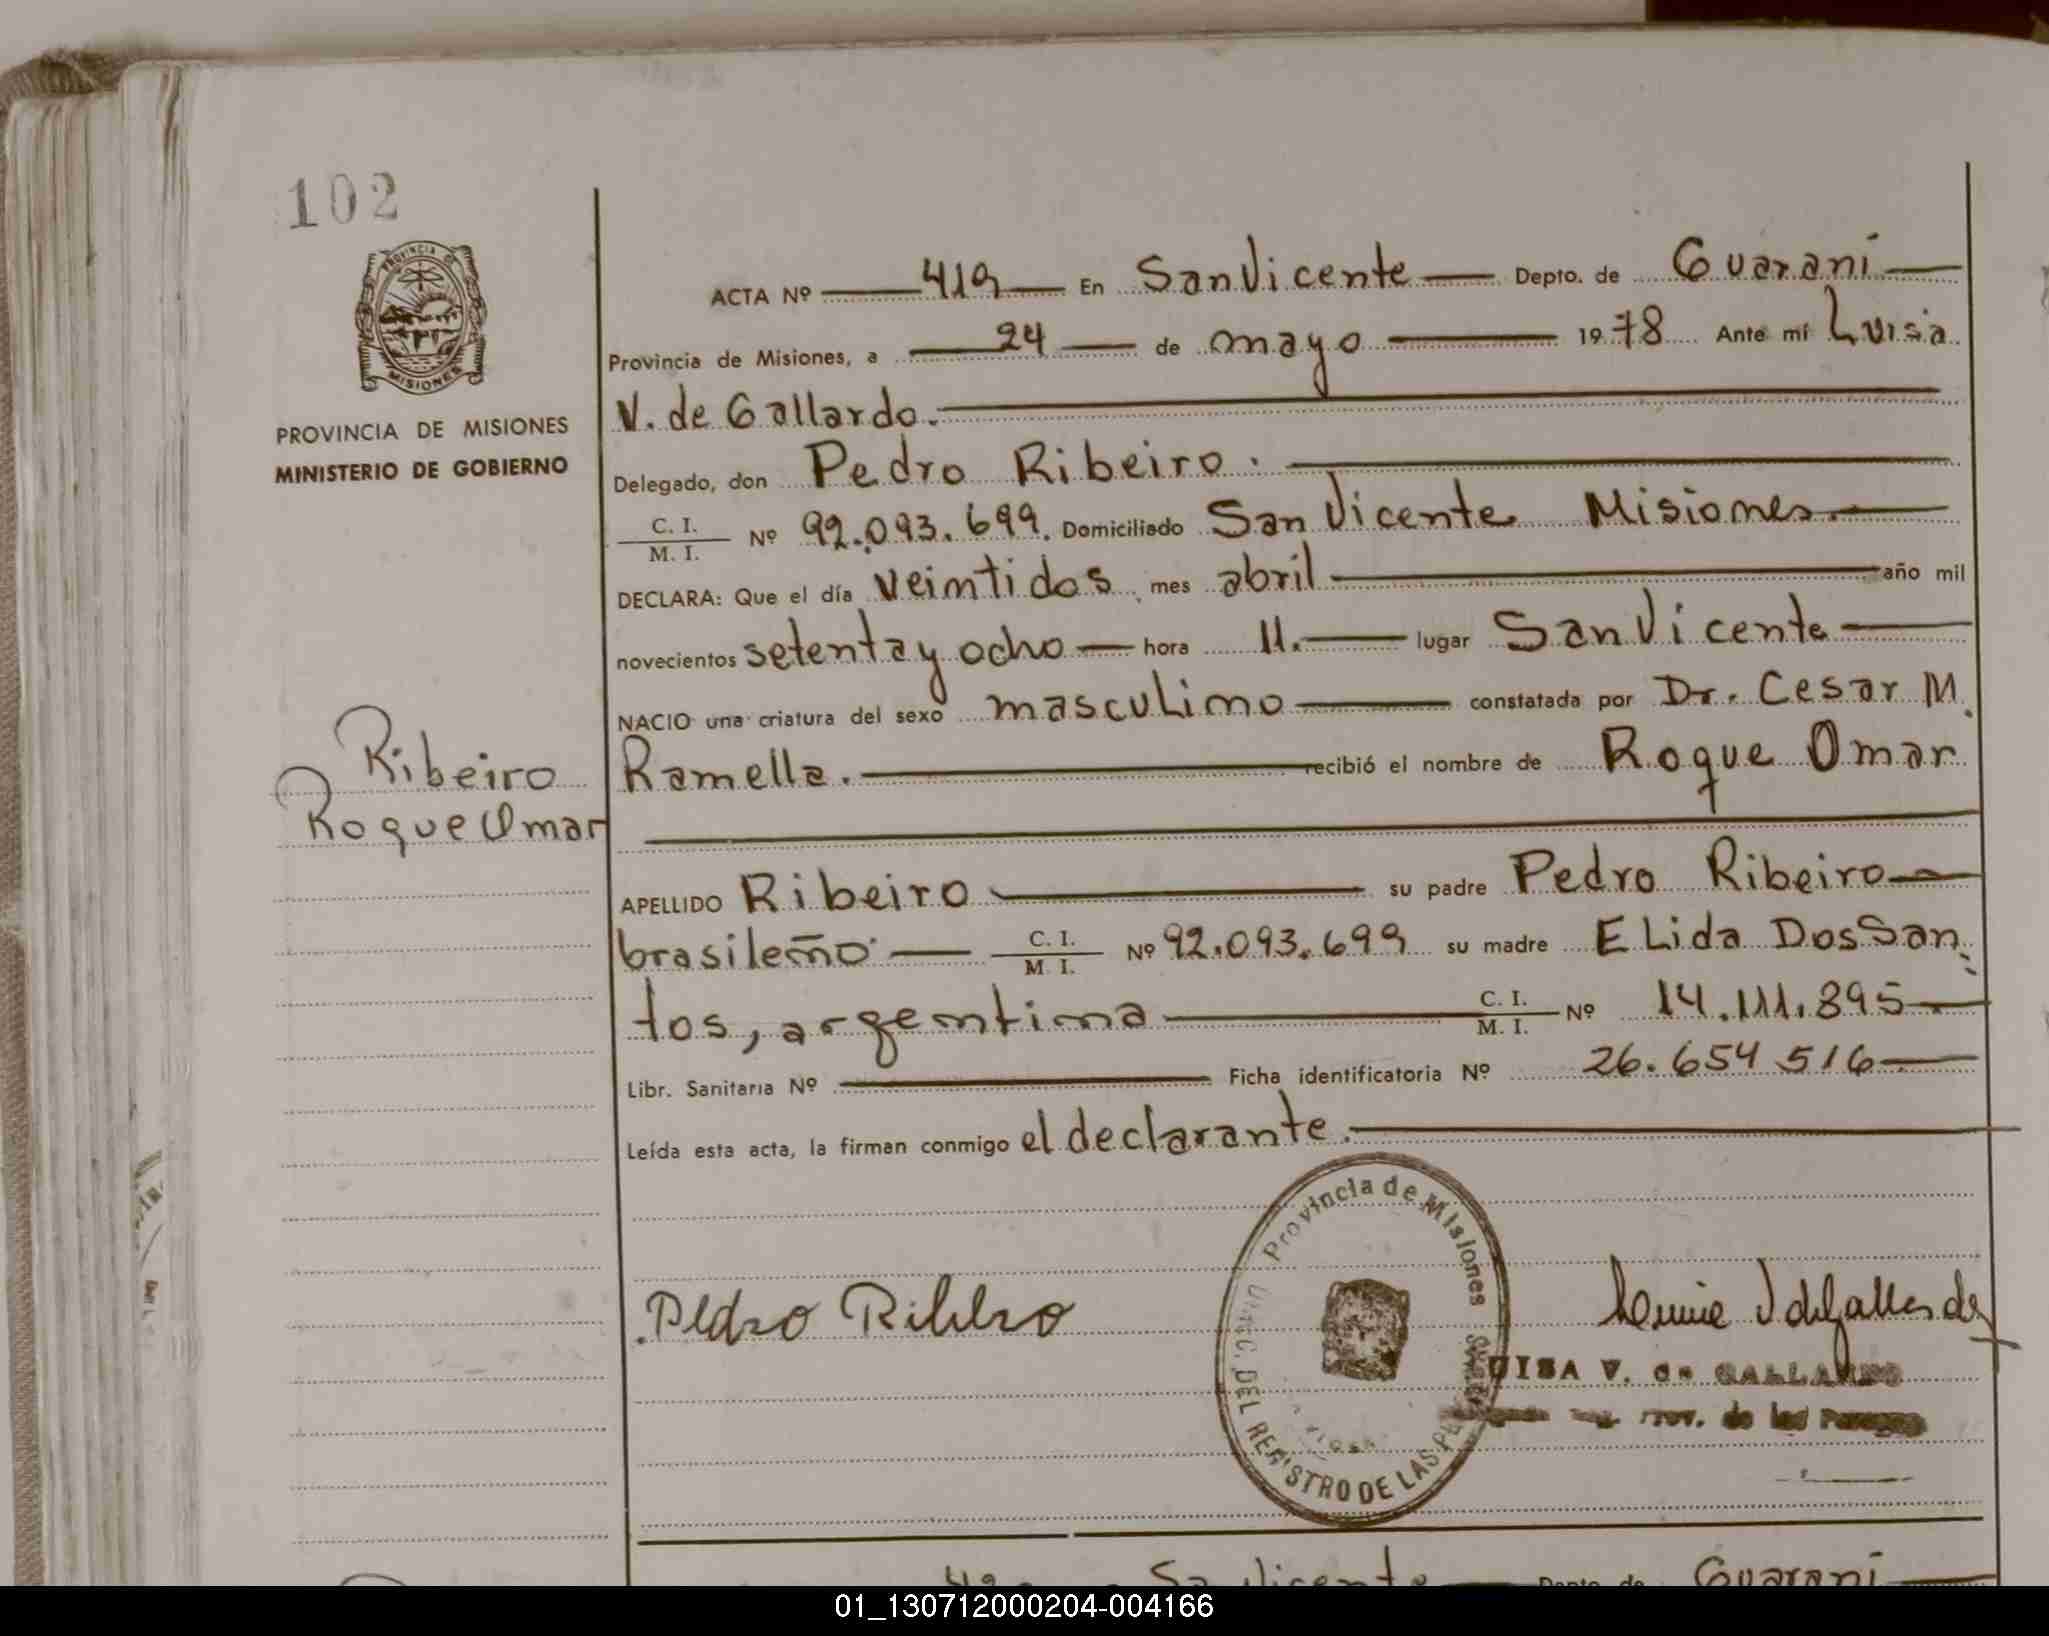 102
PROVINCIA DE
MISIONES
PROVINCIA DE MISIONES
MINISTERIO DE GOBIERNO
ACTA Nº 419 En San Vicente Depto. de Guaraní
Provincia de Misiones, a 24 de mayo 1978 Ante mí Luisa
V. de Gallardo.
Delegado, don Pedro Ribeiro.
C. I.
M. I. Nº 92.093.699. Domiciliado San Vicente Misiones.
DECLARA: Que el día veintidos mes abril año mil
novecientos setenta y ocho hora 11. lugar San Vicente
NACIO una criatura del sexo masculino constatada por Dr. Cesar M.
Ramella. recibió el nombre de Roque Omar
Ribeiro
Roque Omar
APELLIDO Ribeiro su padre Pedro Ribeiro
brasileño C. I.
M. I. Nº 92.093.699 su madre ELida Dos San
tos, argentina C. I.
M. I. Nº 14.111.895
Libr. Sanitaria Nº Ficha identificatoria Nº 26.654 516
Leída esta acta, la firman conmigo el declarante.
Provincia de Misiones
DEL REGISTRO DE LAS
Pedro Ribeiro
UISA V. de GALLARDO
Prov. de las Personas
San Vicente Depto. de Guaraní
01_130712000204-004166